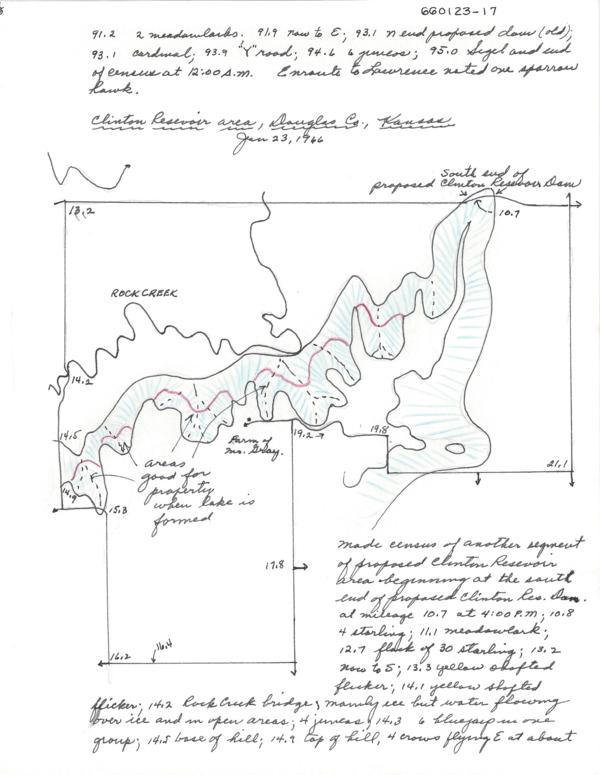 660123-17
91.2 2 meadowlarks. 91.9 now to E; 93.1 N end proposed dam (old);
93.1 cardinal; 93.9 "Y" road; 94.6 6 juncos; 95.0 Sigel and end
of census at 12:00 A.M. Enroute to Lawrence noted one sparrow
hawk.
Clinton Resevoir area, Douglas Co., Kansas
Jan 23, 1966
South end of
proposed Clinton Resevoir Dam
13.2
10.7
ROCK CREEK
14.2
14.5
Farm of
Ms. Gray.
19.2
19.8
areas
good for
property
when lake is
formed
14.9
15.3
21.1
17.8
16.2
16.4
Made census of another segment
of proposed Clinton Resevoir
area beginning at the south
end of proposed Clinton Res. Dam.
at mileage 10.7 at 4:00 P.M; 10.8
4 starling; 11.1 meadowlark;
12.7 flock of 30 starling; 13.2
now to S; 13.3 yellow shafted
flicker; 14.1 yellow shafted
flicker; 14.2 Rock Creek bridge, mainly ice but water flowing
over ice and in open areas; 4 juncos; 14.3 6 bluejays in one
group; 14.5 base of hill; 14.9 top of hill, 4 crows flying E at about